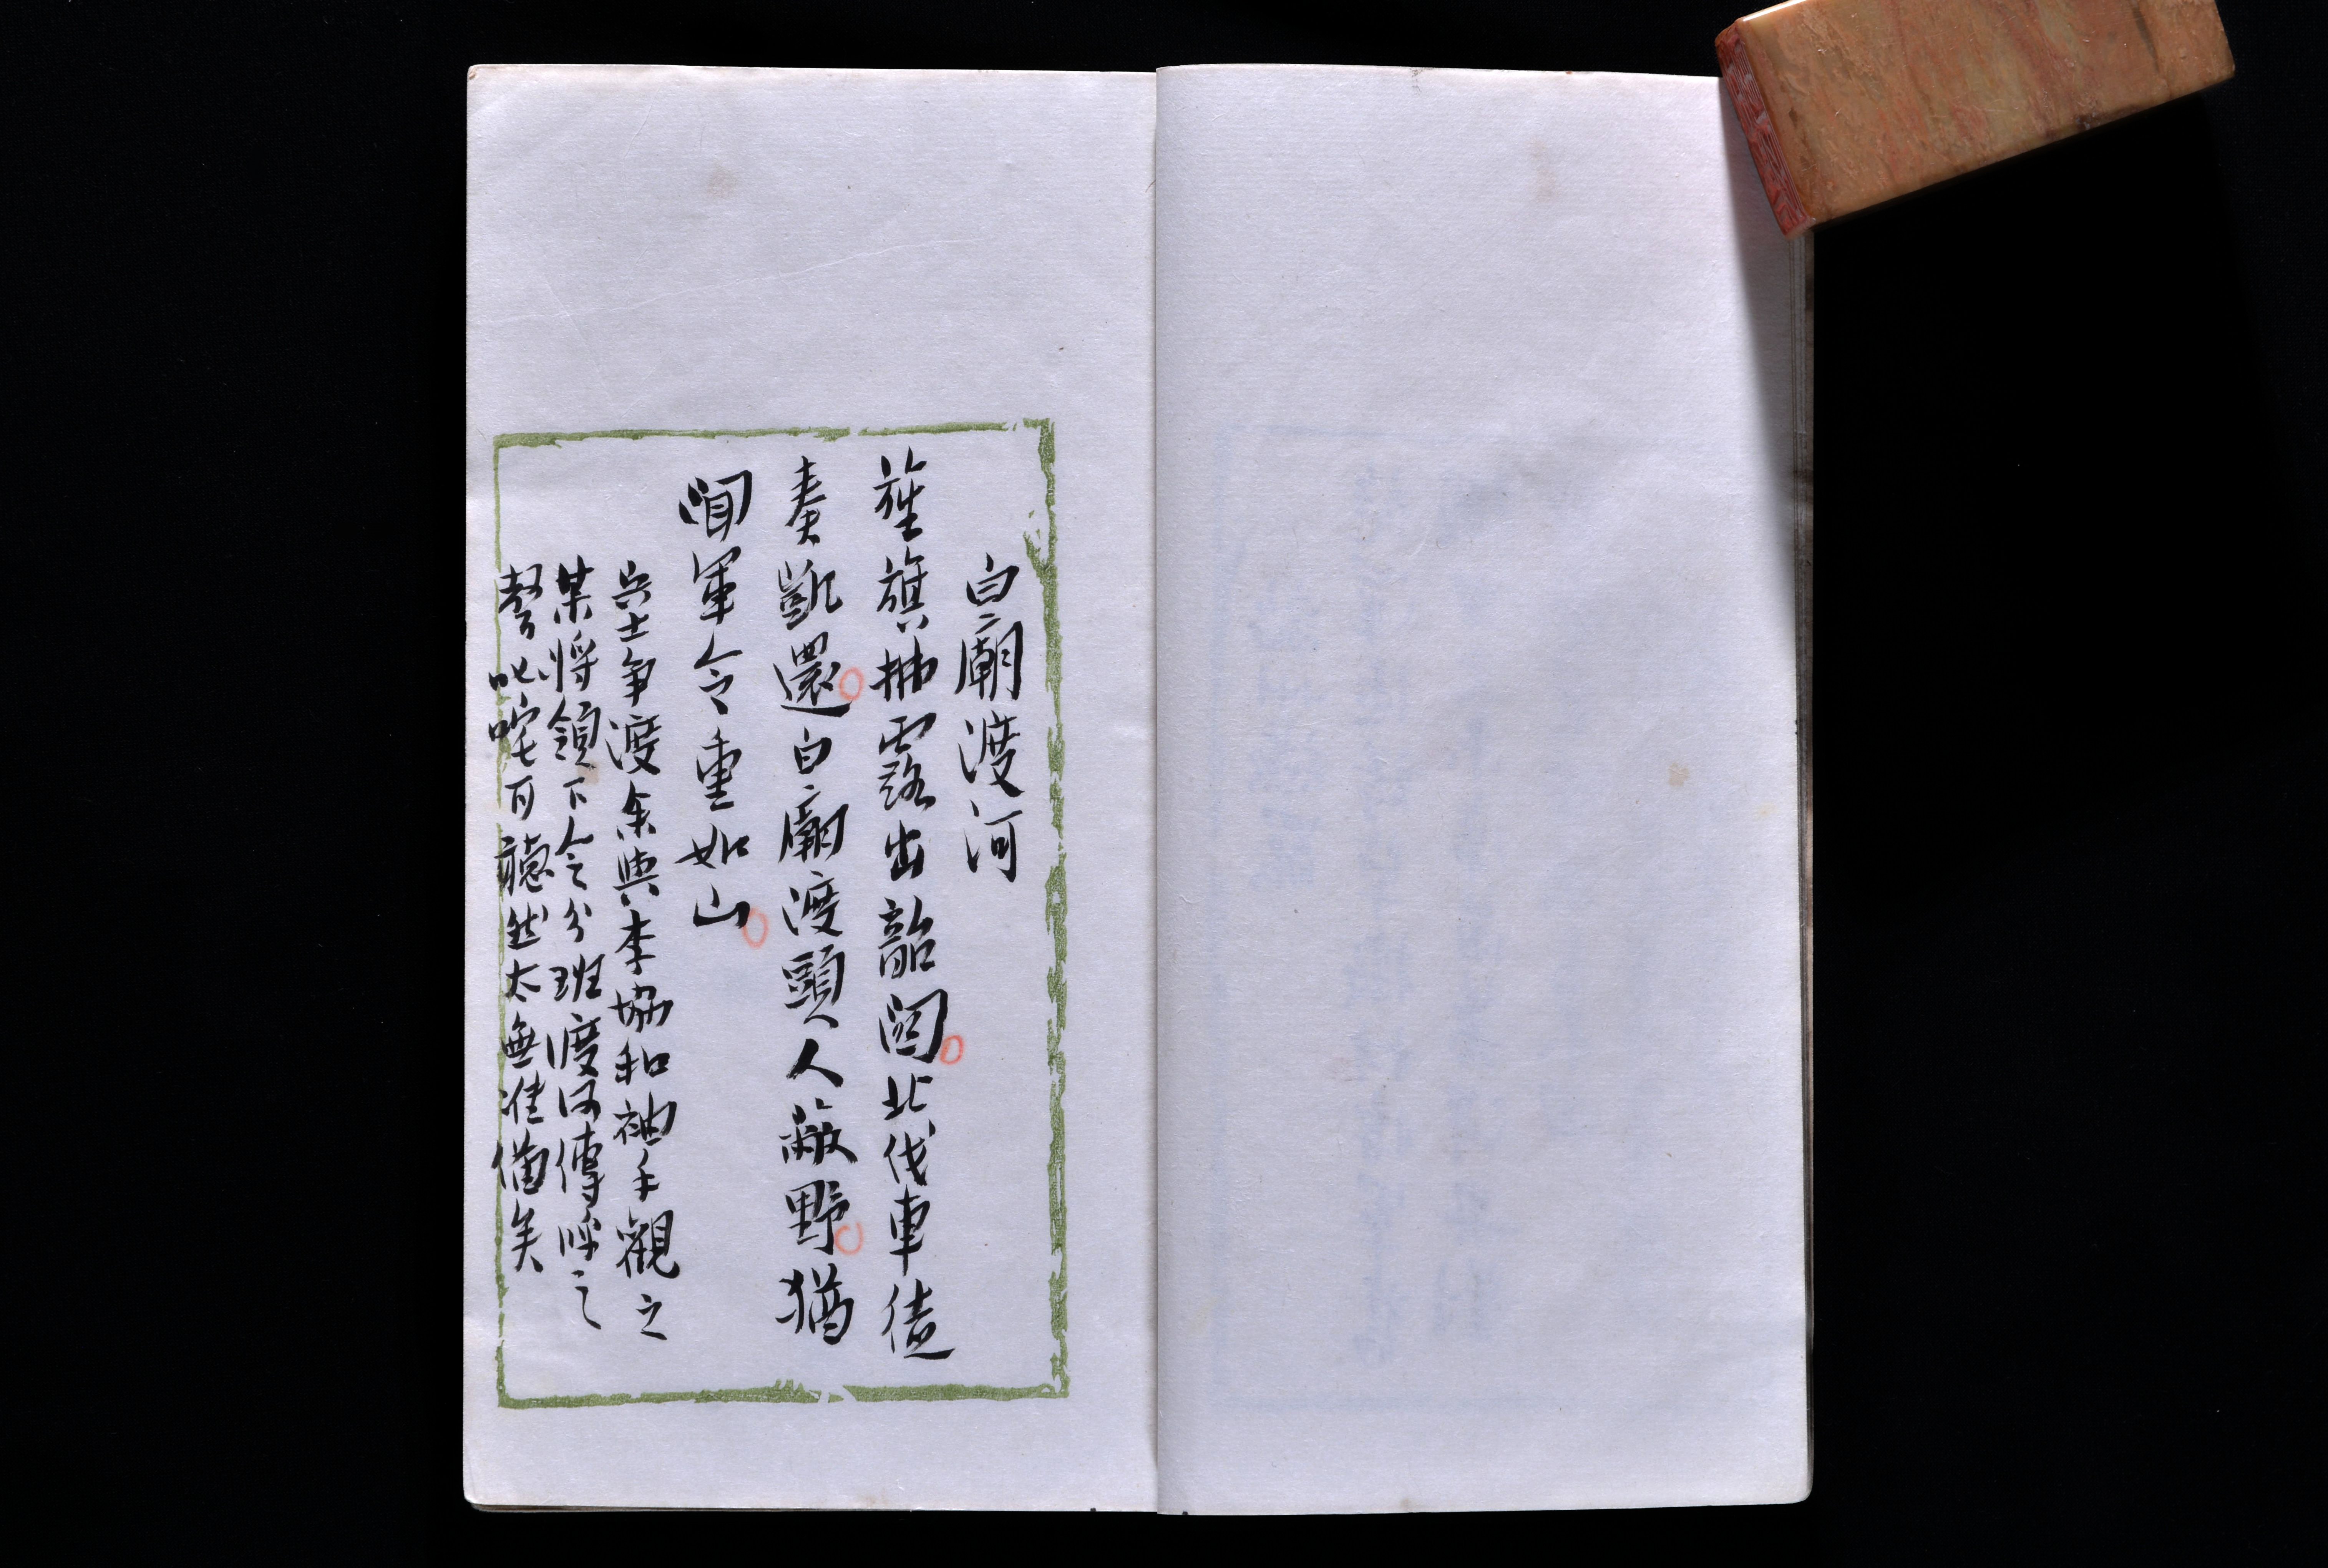 白廟渡河
旌旗拂露出韶関北伐車徒
奏凱還白廟渡頭人蔽野猶
聞軍令重如山
兵士争渡余與李協和袖手觀之
某將領下令分班渡河傳呼之
聲叱咤可聽然太無準備矣